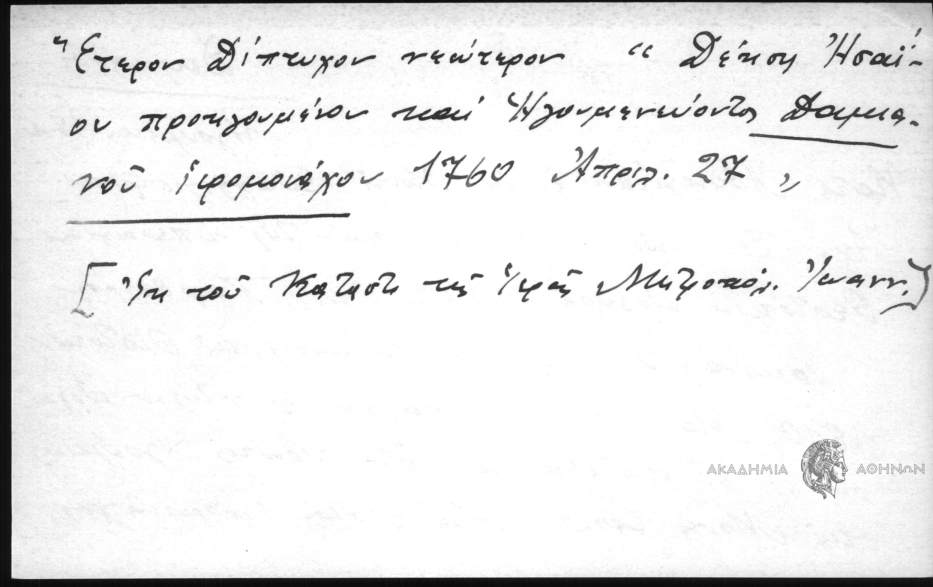 "Ετερον Δίπτυχον νεώτερον “ Δέησις Ἡσαΐ-
ου προηγουμένου καί Ἡγουμενεύοντος Δαμια-
νοῦ ἱερομονάχου 1760 Ἀπριλ. 27 „
[Ἐκ τοῦ Καταστ. τῆς Ἱερᾶς Μητροπόλ. Ἰωανν.]
ΑΚΑΔΗΜΙΑ ΑΘΗΝΩΝ